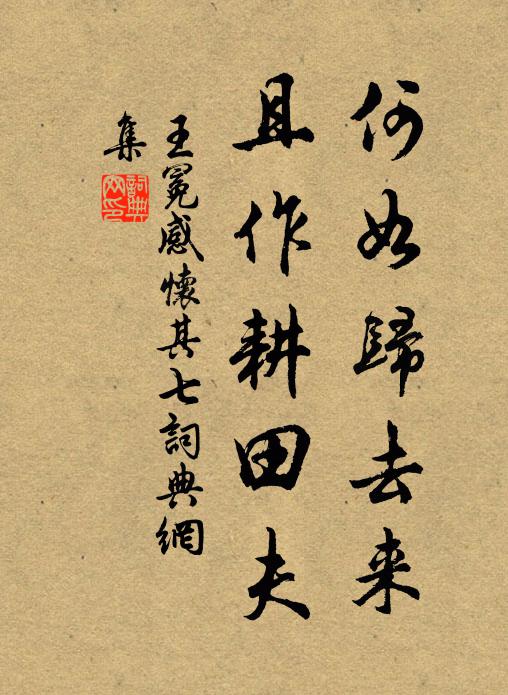 何如歸去来
且作耕田夫
王冕感懷其七詞典網
集
詞典
网印